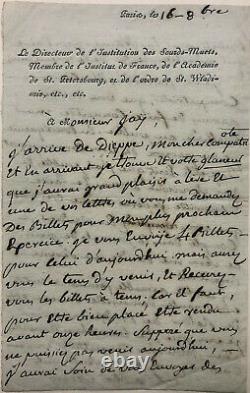 Paris, le 16 - 8bre
Le Directeur de l'Institution des Sourds-Muets,
Membre de l'Institut de France, de l'Académie
de St. Pétersbourg, et de l'ordre de St. Wladi-
mir, etc., etc.
A Monsieur Jay,
J'arrive de Dieppe, mon cher compatriote
Et en arrivant je trouve et votre glaneur
que j'aurai grand plaisir à lire et
une de vos lettres où vous me demandez
Des Billets pour Mon plus prochain
Exercice : je vous Envoye 4 Billets
pour Celui d'aujourdhui mais aurez
vous le tems d'y venir, et Recevrez
vous les billets à tems, Car il faut,
pour Etre bien placé Etre rendu
avant onze heures. Supposé que vous
ne puissiez pas venir aujourdhui,
j'aurai Soin de vous Envoyer des